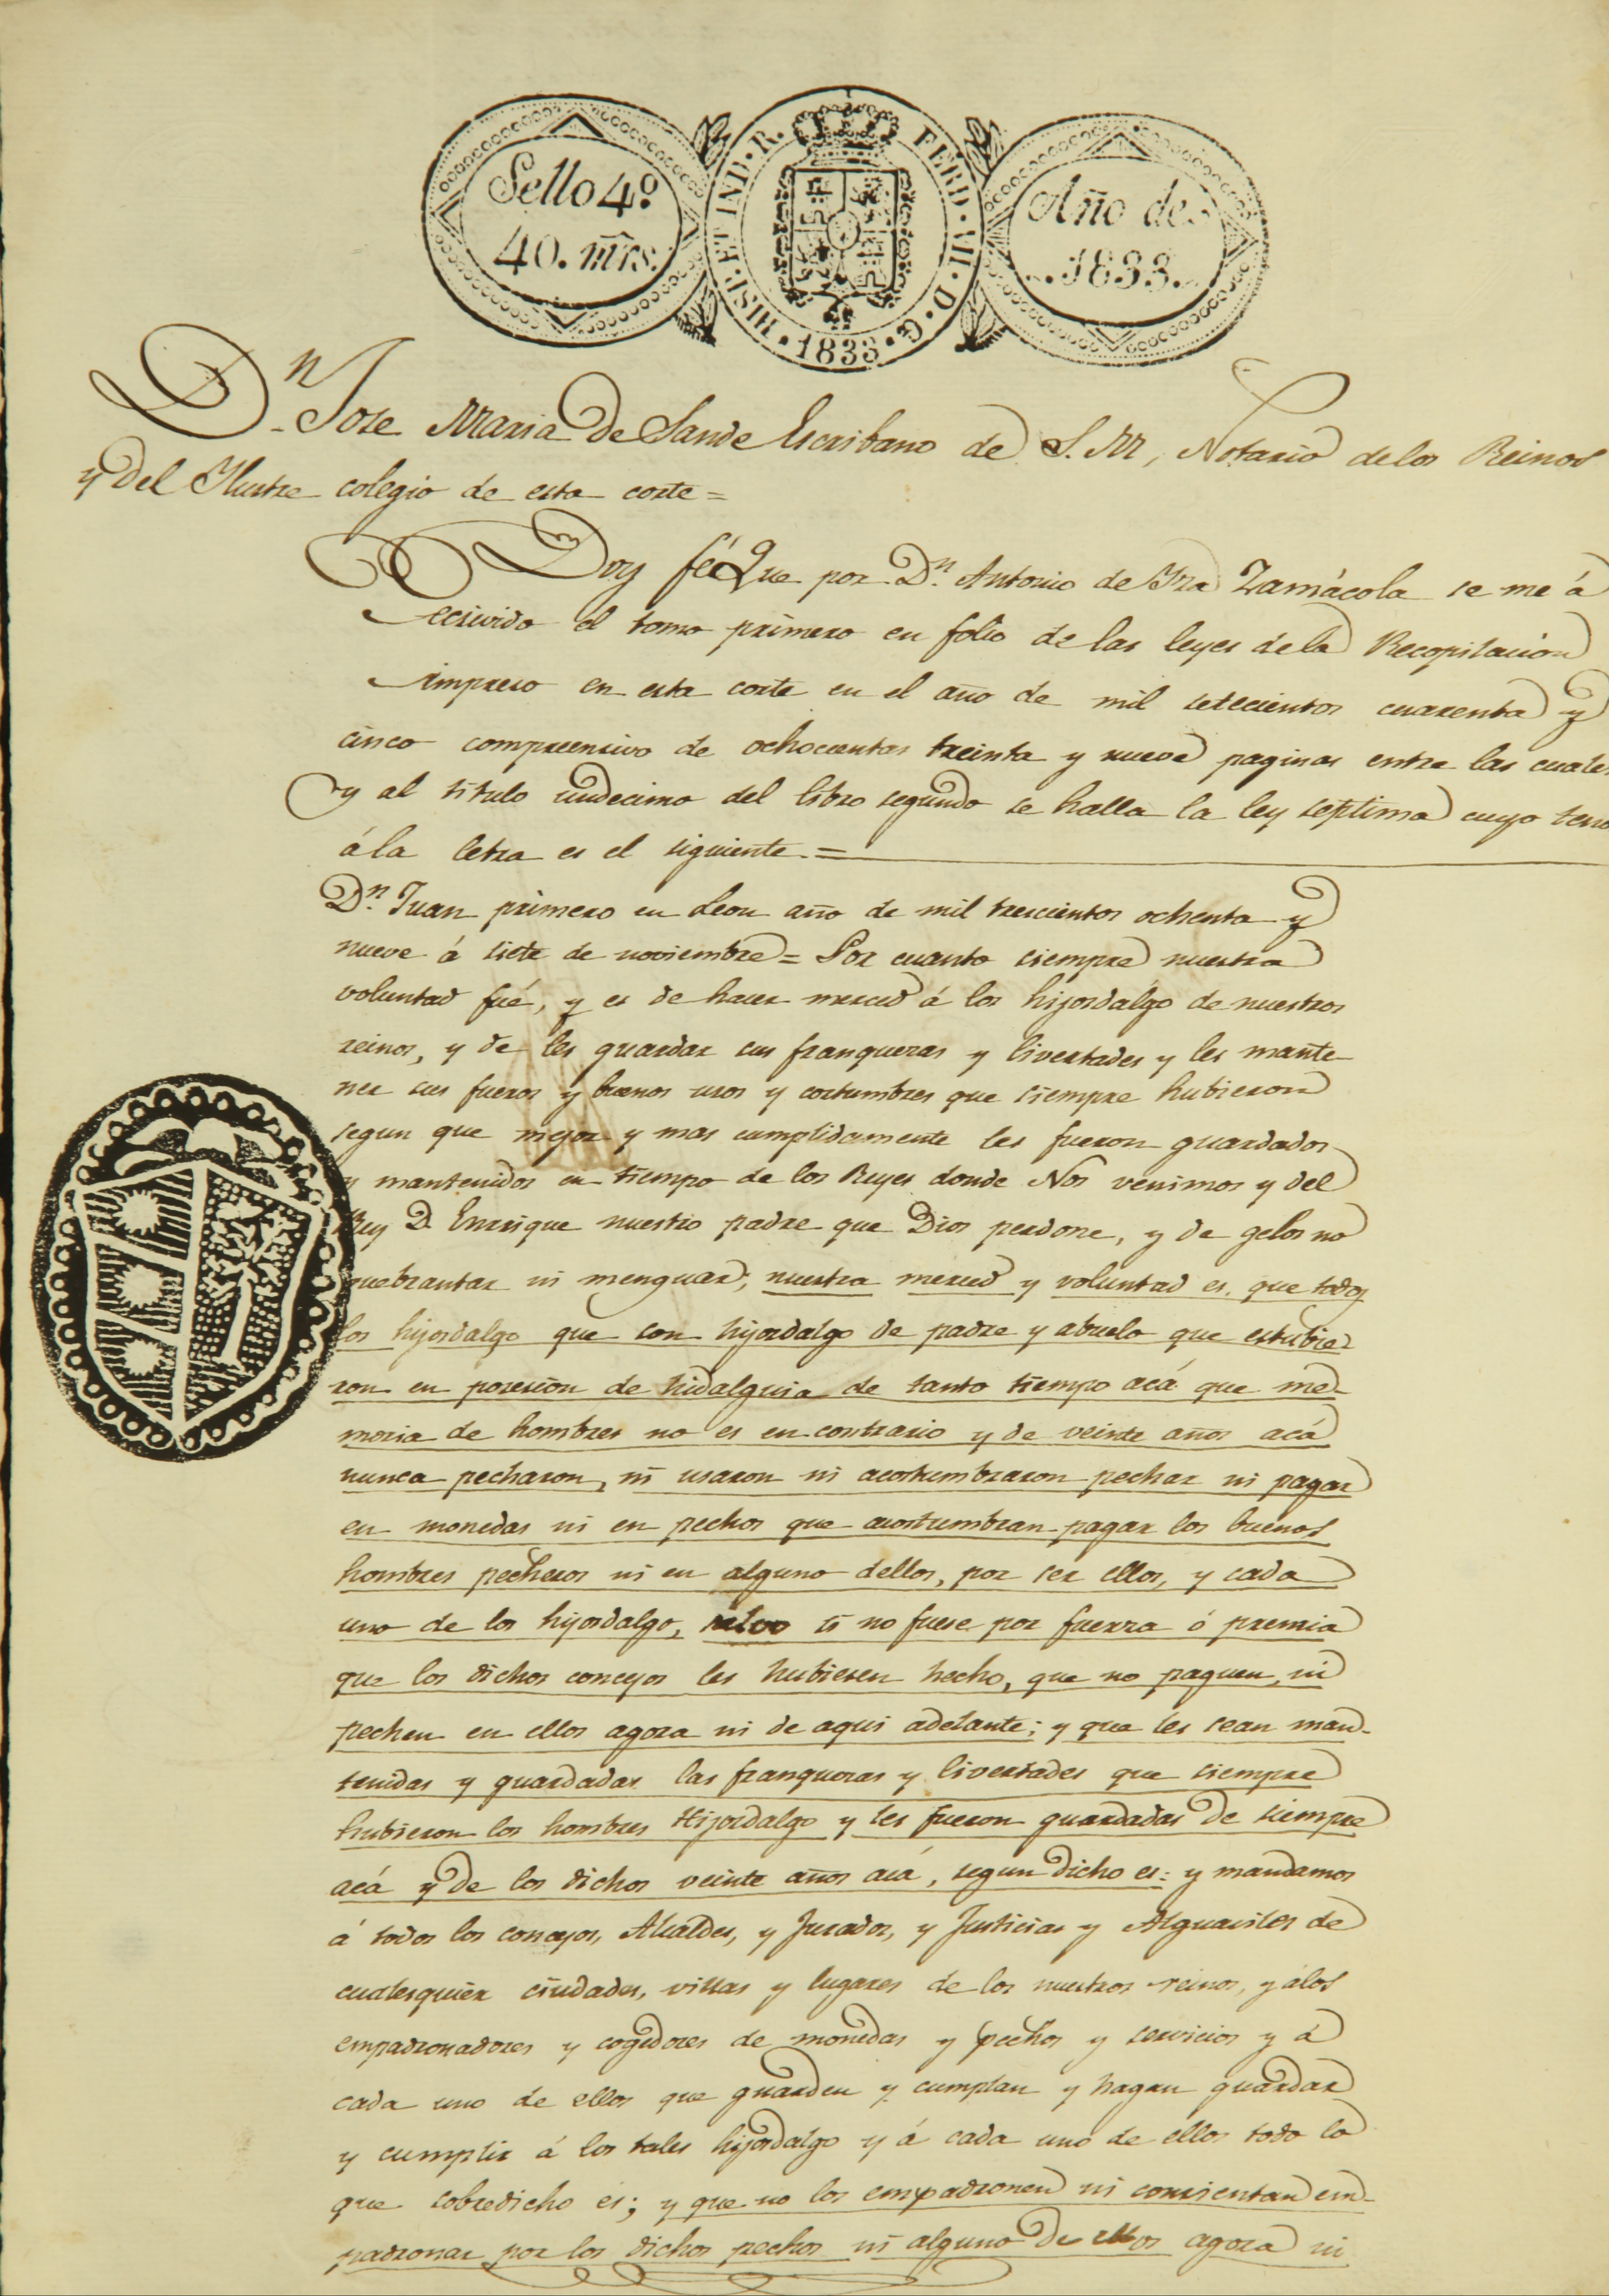 Sello 4º
40. mrs.
HISP. ET IND. R.
FERD. VII. D. G.
1833
Año de
1833.
Dn. Jose Maria de Sande Escribano de S. M, Notario de los Reinos
y del Ilustre colegio de esta corte=
Doy fé Que por Dn. Antonio de Yza Zamácola se me á
ecsivido el tomo primero en folio de las leyes de la Recopilacion
impreso en esta corte en el año de mil setecientos cuarenta y
cinco compreensivo de ochocientas treinta y nueve paginas entre las cuales
y al titulo undecimo del libro segundo se halla la ley septima cuyo teno
á la letra es el siguiente.=
Dn. Juan primero en Leon año de mil trescientos ochenta y
nueve á siete de noviembre= Por cuanto siempre nuestra
voluntad fué, y es de hacer merced á los hijosdalgo de nuestros
reinos, y de les guardar sus franquezas y livertades y les mante
ner sus fueros y buenos usos y costumbres que siempre hubieron
segun que mejor y mas cumplidamente les fueron guardados
y mantenidos en tiempo de los Reyes donde Nos venimos y del
Rey D. Enrrique nuestro padre que Dios perdone, y de gelos no
quebrantar ni menguar; nuestra merced y voluntad es, que todos
los hijosdalgo que son hijosdalgo de padre y abuelo que estubie
ron en posesion de hidalguia de tanto tiempo acá que me-
moria de hombres no es en contrario y de veinte años acá
nunca pecharon, ni usaron ni acostumbraron pechar ni pagar
en monedas ni en pechos que acostumbran pagar los buenos
hombres pecheros ni en alguno dellos, por ser ellos, y cada
uno de los hijosdalgo, salvo si no fuese por fuerza ó premia
que los dichos concejos les hubiesen hecho, que no paguen, ni
pechen en ellos agora ni de aqui adelante; y que les sean man-
tenidas y guardadas las franquezas y livertades que siempre
hubieron los hombres Hijosdalgo y les fueron guardadas de siempre
acá y de los dichos veinte años acá, segun dicho es: y mandamos
á todos los concejos, Alcaldes, y Jurados, y Justicias y Alguaciles de
cualesquier ciudades, villas y lugares de los nuestros reinos, y á los
empadronadores y cogedores de monedas y pechos y servicios y á
cada uno de ellos que guarden y cumplan y hagan guardar
y cumplir á los tales hijosdalgo y á cada uno de ellos todo lo
que sobredicho es; y que no los empadronen ni consientan em-
padronar por los dichos pechos ni alguno de ellos agora ni